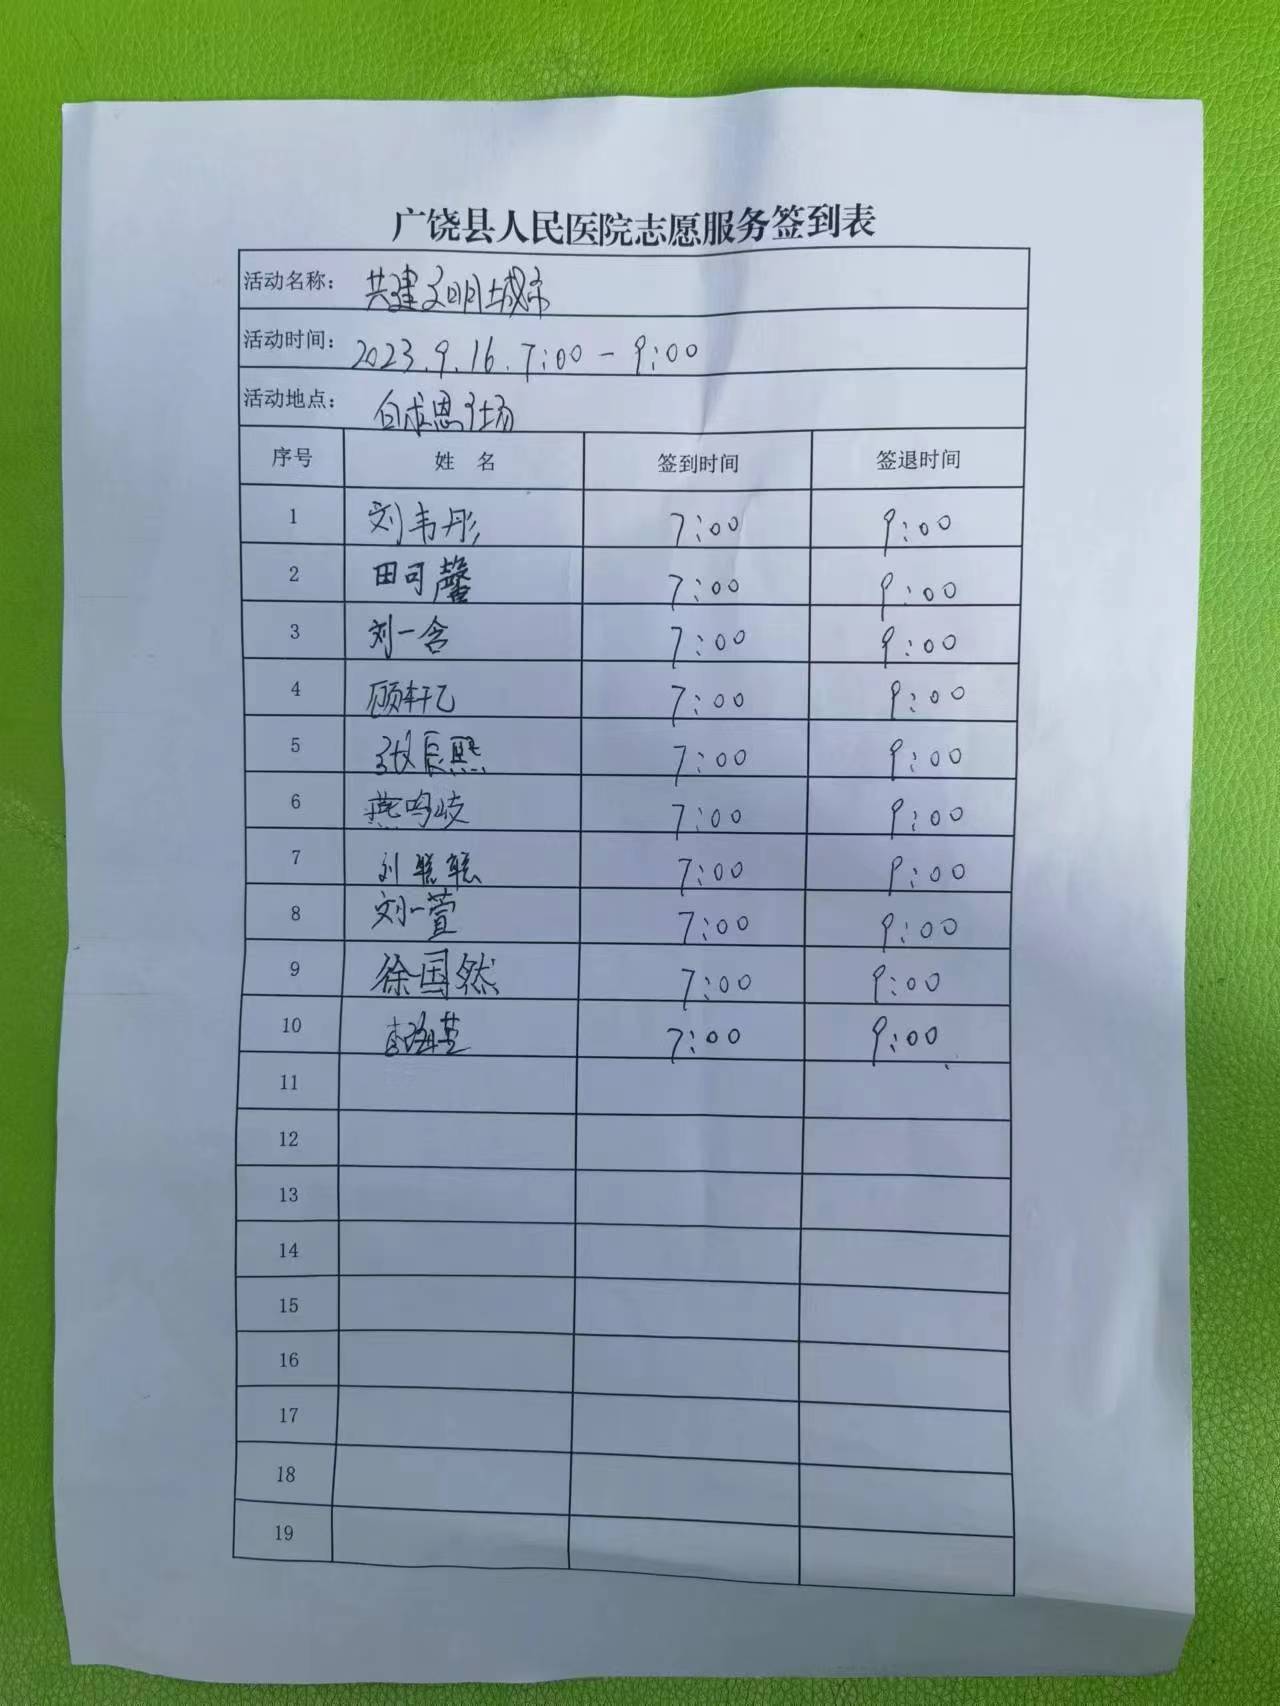 广饶县人民医院志愿服务签到表
活动名称： 共建文明城市
活动时间： 2023.9.16.7:00-9:00
活动地点： 白求恩广场
序号 姓 名 签到时间 签退时间
1 刘韦彤 7:00 9:00
2 田可馨 7:00 9:00
3 刘一含 7:00 9:00
4 顾轩乙 7:00 9:00
5 张辰熙 7:00 9:00
6 燕鸣岐 7:00 9:00
7 刘 7:00 9:00
8 刘一萱 7:00 9:00
9 徐国然 7:00 9:00
10 7:00 9:00
11
12
13
14
15
16
17
18
19